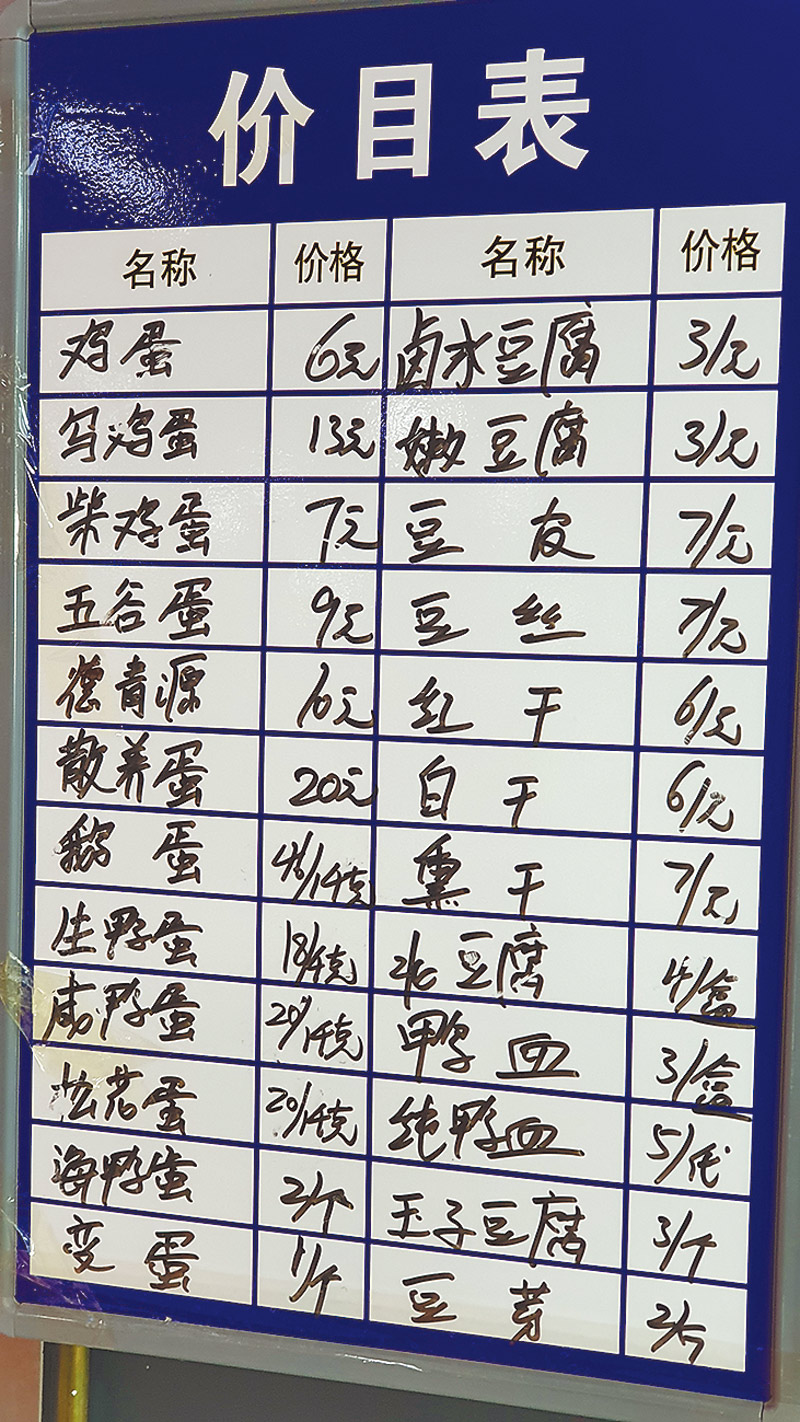 价目表
名称 价格 名称 价格
鸡蛋 6元 卤水豆腐 3/元
乌鸡蛋 13元 嫩豆腐 3/元
柴鸡蛋 7元 豆皮 7/元
五谷蛋 9元 豆丝 7/元
德青源 16元 红干 6/元
散养蛋 20元 白干 6/元
鹅蛋 46/1千克 熏干 7/元
生鸭蛋 18/千克 北豆腐 4/盒
咸鸭蛋 20/1千克 鸭血 3/盒
松花蛋 20/1千克 纯鸭血 5/代
海鸭蛋 2/个 玉子豆腐 3/个
变蛋 1/个 豆芽 2/斤